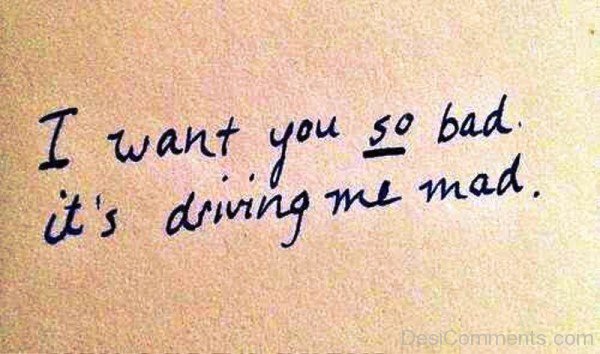 I want you so bad.
it's driving me mad.
DesiComments.com